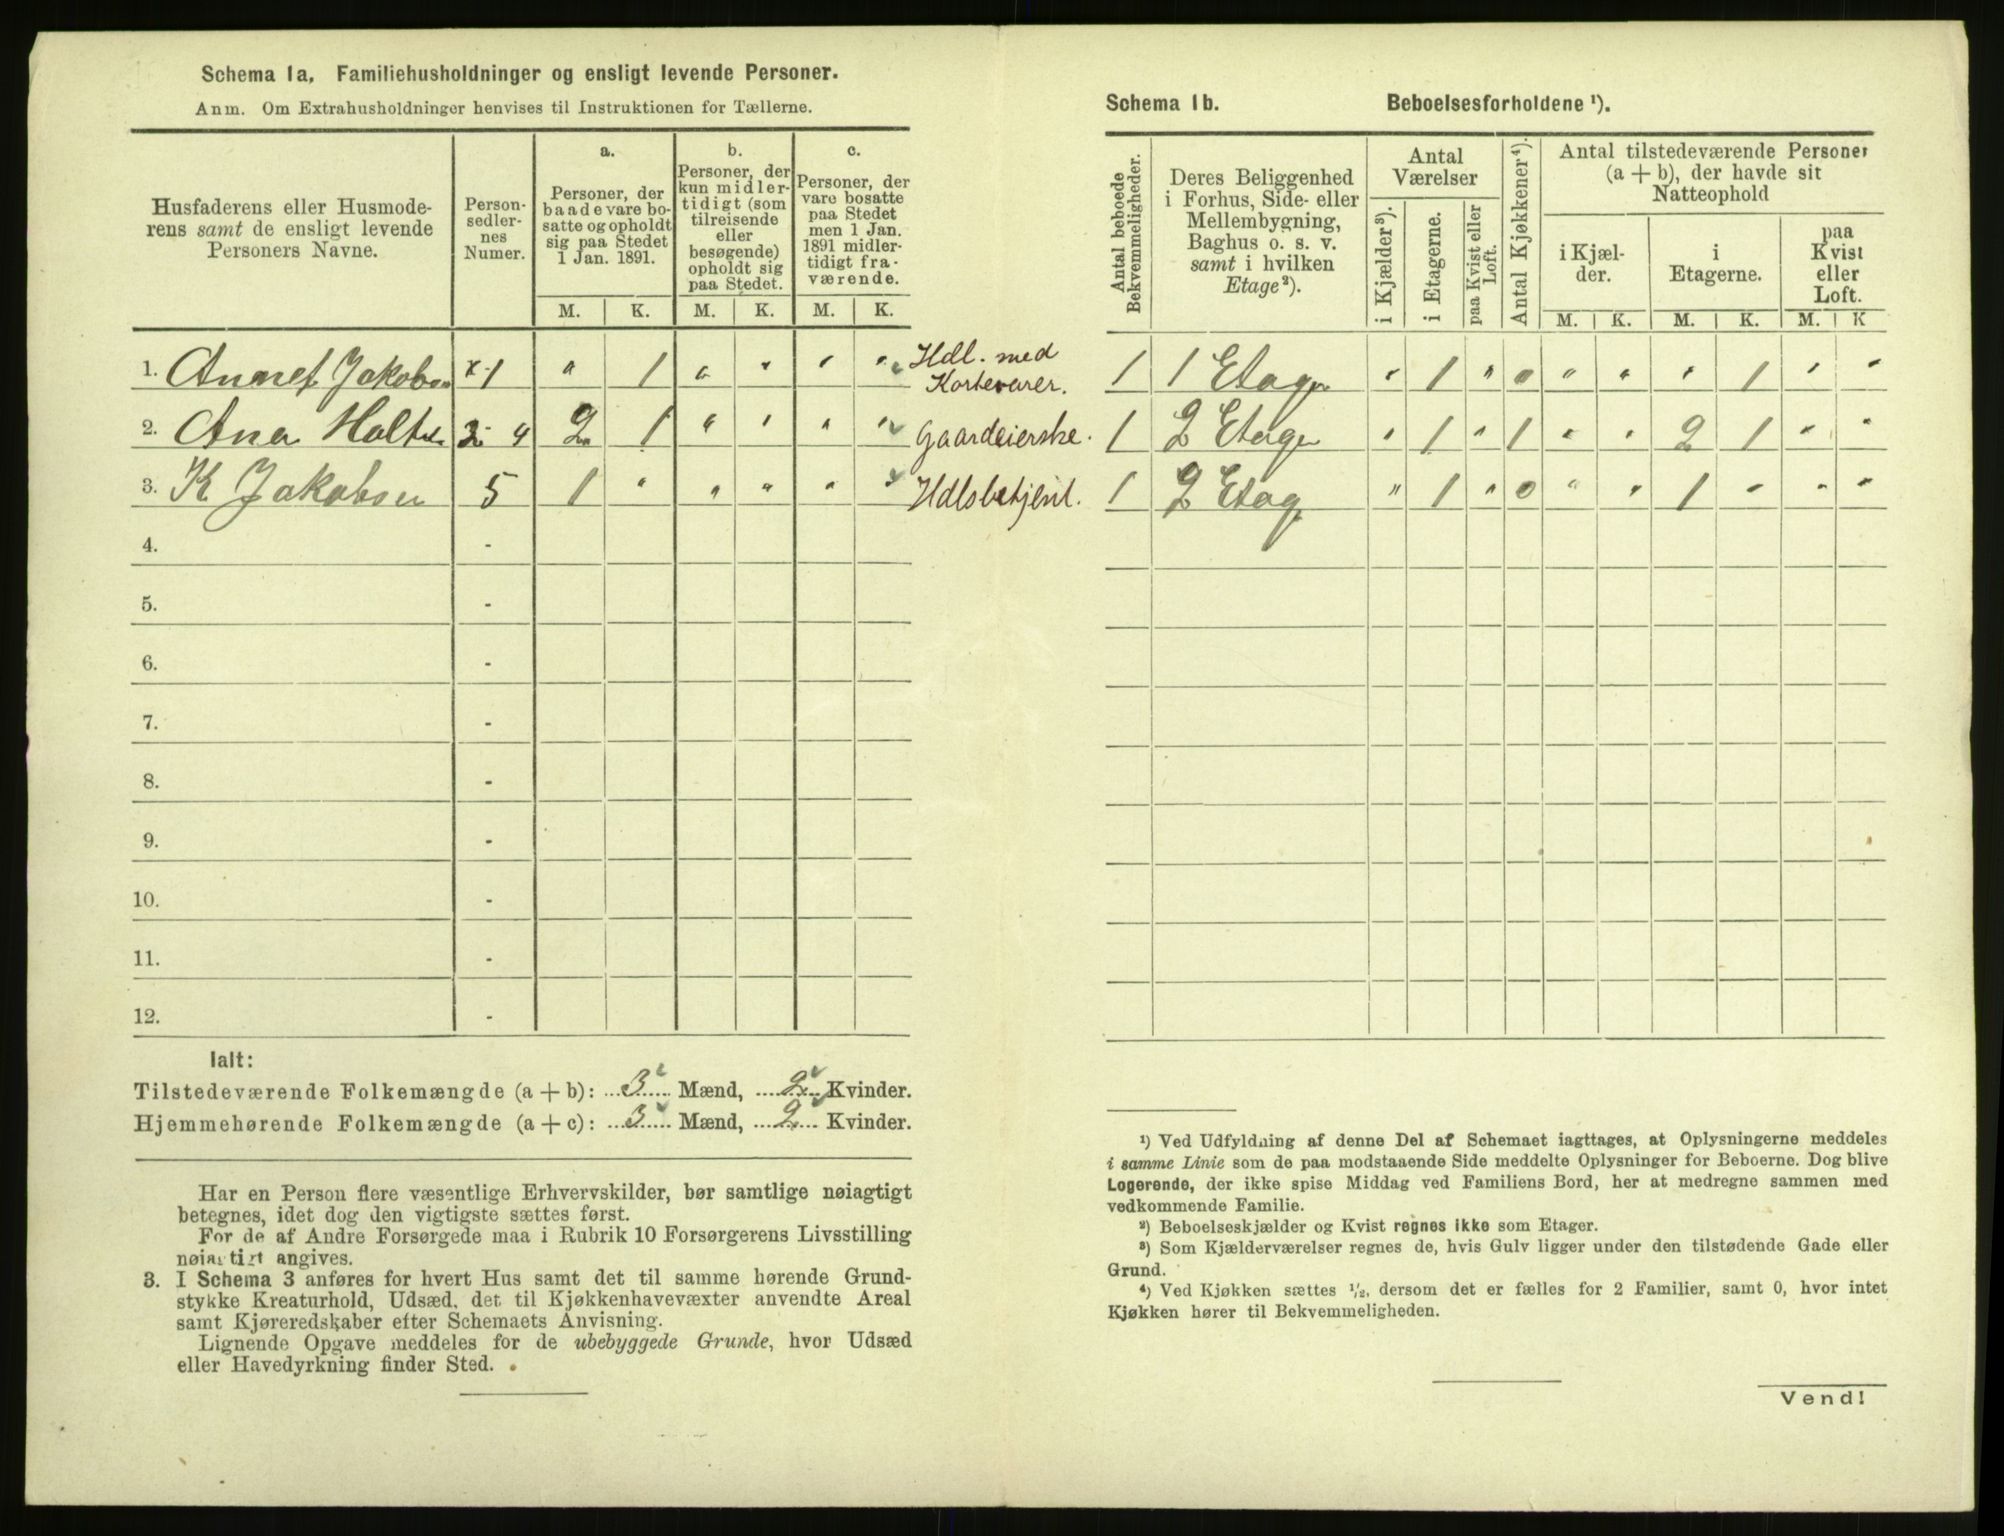 Schema 1a, Familiehusholdninger og ensligt levende Personer.
Anm. Om Extrahusholdninger henvises til Instruktionen for Tællerne.
Husfaderens eller Husmode-
rens samt de ensligt levende
Personers Navne.
Person-
sedler-
nes
Numer.
a.
Personer, der
baade vare bo-
satte og opholdt
sig paa Stedet
1 Jan. 1891.
b.
Personer, der
kun midler-
tidigt (som
tilreisende
eller
besøgende)
opholdt sig
paa Stedet.
c.
Personer, der
vare bosatte
paa Stedet
men 1 Jan.
1891 midler-
tidigt fra-
værende.
M. K. M. K. M. K.
1. Jakobsen × 1 " 1 " " " " Hdl. med
Kortevarer.
2. Ana 2 - 4 2 1 " " " " Gaardeierske.
3. K Jakobsen 5 1 " " " " " Hdlsbetjent.
4. -
5. -
6. -
7. -
8. -
9. -
10. -
11. -
12. -
Ialt:
Tilstedeværende Folkemængde (a + b): 3 Mænd, 2 Kvinder.
Hjemmehørende Folkemængde (a + c): 3 Mænd, 2 Kvinder.
Har en Person flere væsentlige Erhvervskilder, bør samtlige nøiagtigt
betegnes, idet dog den vigtigste sættes først.
For de af Andre Forsørgede maa i Rubrik 10 Forsørgerens Livsstilling
nøiagtigt angives.
3. I Schema 3 anføres for hvert Hus samt det til samme hørende Grund-
stykke Kreaturhold, Udsæd, det til Kjøkkenhavevæxter anvendte Areal
samt Kjøreredskaber efter Schemaets Anvisning.
Lignende Opgave meddeles for de ubebyggede Grunde, hvor Udsæd
eller Havedyrkning finder Sted.
Schema 1b. Beboelsesforholdene ¹).
Antal beboede
Bekvemmeligheder.
Deres Beliggenhed
i Forhus, Side- eller
Mellembygning,
Baghus o. s. v.
samt i hvilken
Etage²).
Antal
Værelser
i Kjælder³).
i Etagerne.
paa Kvist eller
Loft.
Antal Kjøkkener⁴).
Antal tilstedeværende Personer
(a + b), der havde sit
Natteophold
i Kjæl-
der.
i
Etagerne.
paa
Kvist
eller
Loft.
M. K. M. K. M. K
1 1 Etage " 1 " 0 " " " 1 " "
1 2 Etage " 1 " 1 " " 2 1 " "
1 2 Etag " 1 " 0 " " 1 " " "
¹) Ved Udfyldning af denne Del af Schemaet iagttages, at Oplysningerne meddeles
i samme Linie som de paa modstaaende Side meddelte Oplysninger for Beboerne. Dog blive
Logerende, der ikke spise Middag ved Familiens Bord, her at medregne sammen med
vedkommende Familie.
²) Beboelseskjælder og Kvist regnes ikke som Etager.
³) Som Kjælderværelser regnes de, hvis Gulv ligger under den tilstødende Gade eller
Grund.
⁴) Ved Kjøkken sættes ½, dersom det er fælles for 2 Familier, samt 0, hvor intet
Kjøkken hører til Bekvemmeligheden.
Vend!